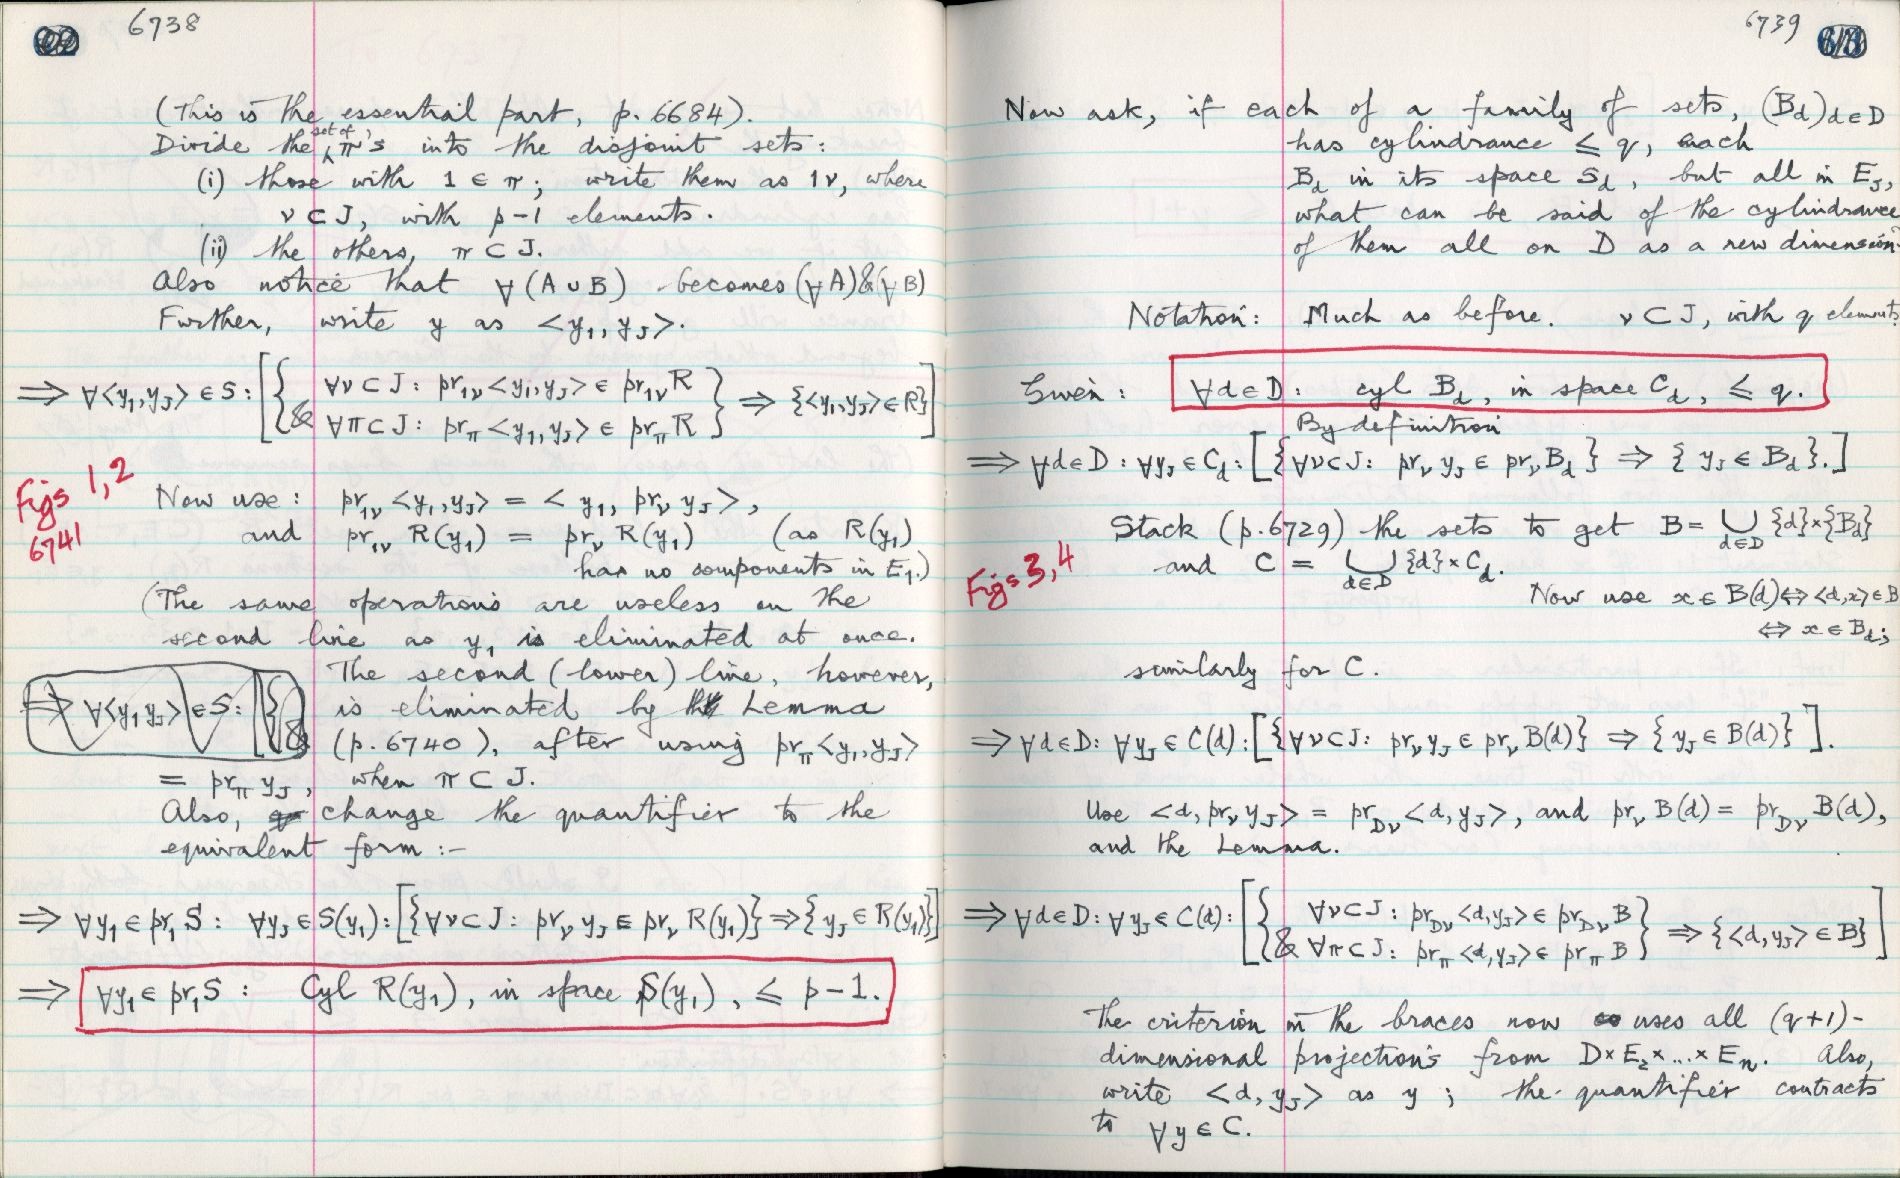 6738
(This is the essential part, p. 6684).
Divide the set of π's into the disjoint sets:
(i) those with 1 ∈ π; write them as 1ν, where
ν ⊂ J, with p-1 elements.
(ii) the others, π ⊂ J.
Also notice that ∀(A ∪ B) becomes (∀A)&(∀B)
Further, write y as <y₁, y_J>.
⟹ ∀<y₁,y_J> ∈ S: [{ ∀ν⊂J: pr_1ν <y₁,y_J> ∈ pr_1ν R
& ∀π⊂J: pr_π <y₁,y_J> ∈ pr_π R } ⟹ {<y₁,y_J> ∈ R}]
Figs 1,2
6741
Now use: pr_1ν <y₁,y_J> = < y₁, pr_ν y_J >,
and pr_1ν R(y₁) = pr_ν R(y₁) (as R(y₁)
has no components in E₁.)
(The same operations are useless on the
second line as y₁ is eliminated at once.
The second (lower) line, however,
⟹ ∀<y₁ y_J> ∈ S: [{&
is eliminated by Lemma
(p. 6740), after using pr_π <y₁,y_J>
= pr_π y_J, when π ⊂ J.
Also, change the quantifier to the
equivalent form :-
⟹ ∀y₁ ∈ pr₁ S: ∀y_J ∈ S(y₁): [{∀ν⊂J: pr_ν y_J ∈ pr_ν R(y₁)} ⟹ {y_J ∈ R(y₁)}]
⟹ ∀y₁ ∈ pr₁ S : Cyl R(y₁), in space S(y₁), ≤ p-1.
6739
Now ask, if each of a family of sets, (B_d)_d∈D
has cylindrance ≤ q, each
B_d in its space S_d, but all in E_J,
what can be said of the cylindrance
of them all on D as a new dimension.
Notation: Much as before. ν ⊂ J, with q elements.
Given: ∀d∈D: cyl B_d, in space C_d, ≤ q.
By definition
⟹ ∀d∈D: ∀y_J ∈ C_d: [{∀ν⊂J: pr_ν y_J ∈ pr_ν B_d} ⟹ {y_J ∈ B_d}.]
Stack (p. 6729) the sets to get B = ⋃_d∈D {d}×{B_d}
Figs 3,4
and C = ⋃_d∈D {d}×C_d.
Now use x ∈ B(d) ⟺ <d,x> ∈ B
⟺ x ∈ B_d;
similarly for C.
⟹ ∀d∈D: ∀y_J ∈ C(d): [{∀ν⊂J: pr_ν y_J ∈ pr_ν B(d)} ⟹ {y_J ∈ B(d)}].
Use <d, pr_ν y_J> = pr_Dν <d, y_J>, and pr_ν B(d) = pr_Dν B(d),
and the Lemma.
⟹ ∀d∈D: ∀y_J ∈ C(d): [{ ∀ν⊂J: pr_Dν <d,y_J> ∈ pr_Dν B
& ∀π⊂J: pr_π <d,y_J> ∈ pr_π B } ⟹ {<d,y_J> ∈ B}]
The criterion in the braces now uses all (q+1)-
dimensional projections from D×E₂×...×Eₙ. Also,
write <d, y_J> as y; the quantifier contracts
to ∀y ∈ C.